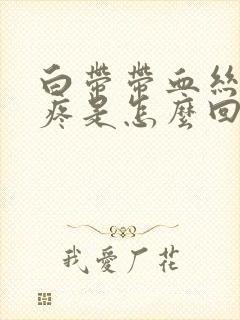 白帶帶血絲
疼是怎麼回
我愛廠花